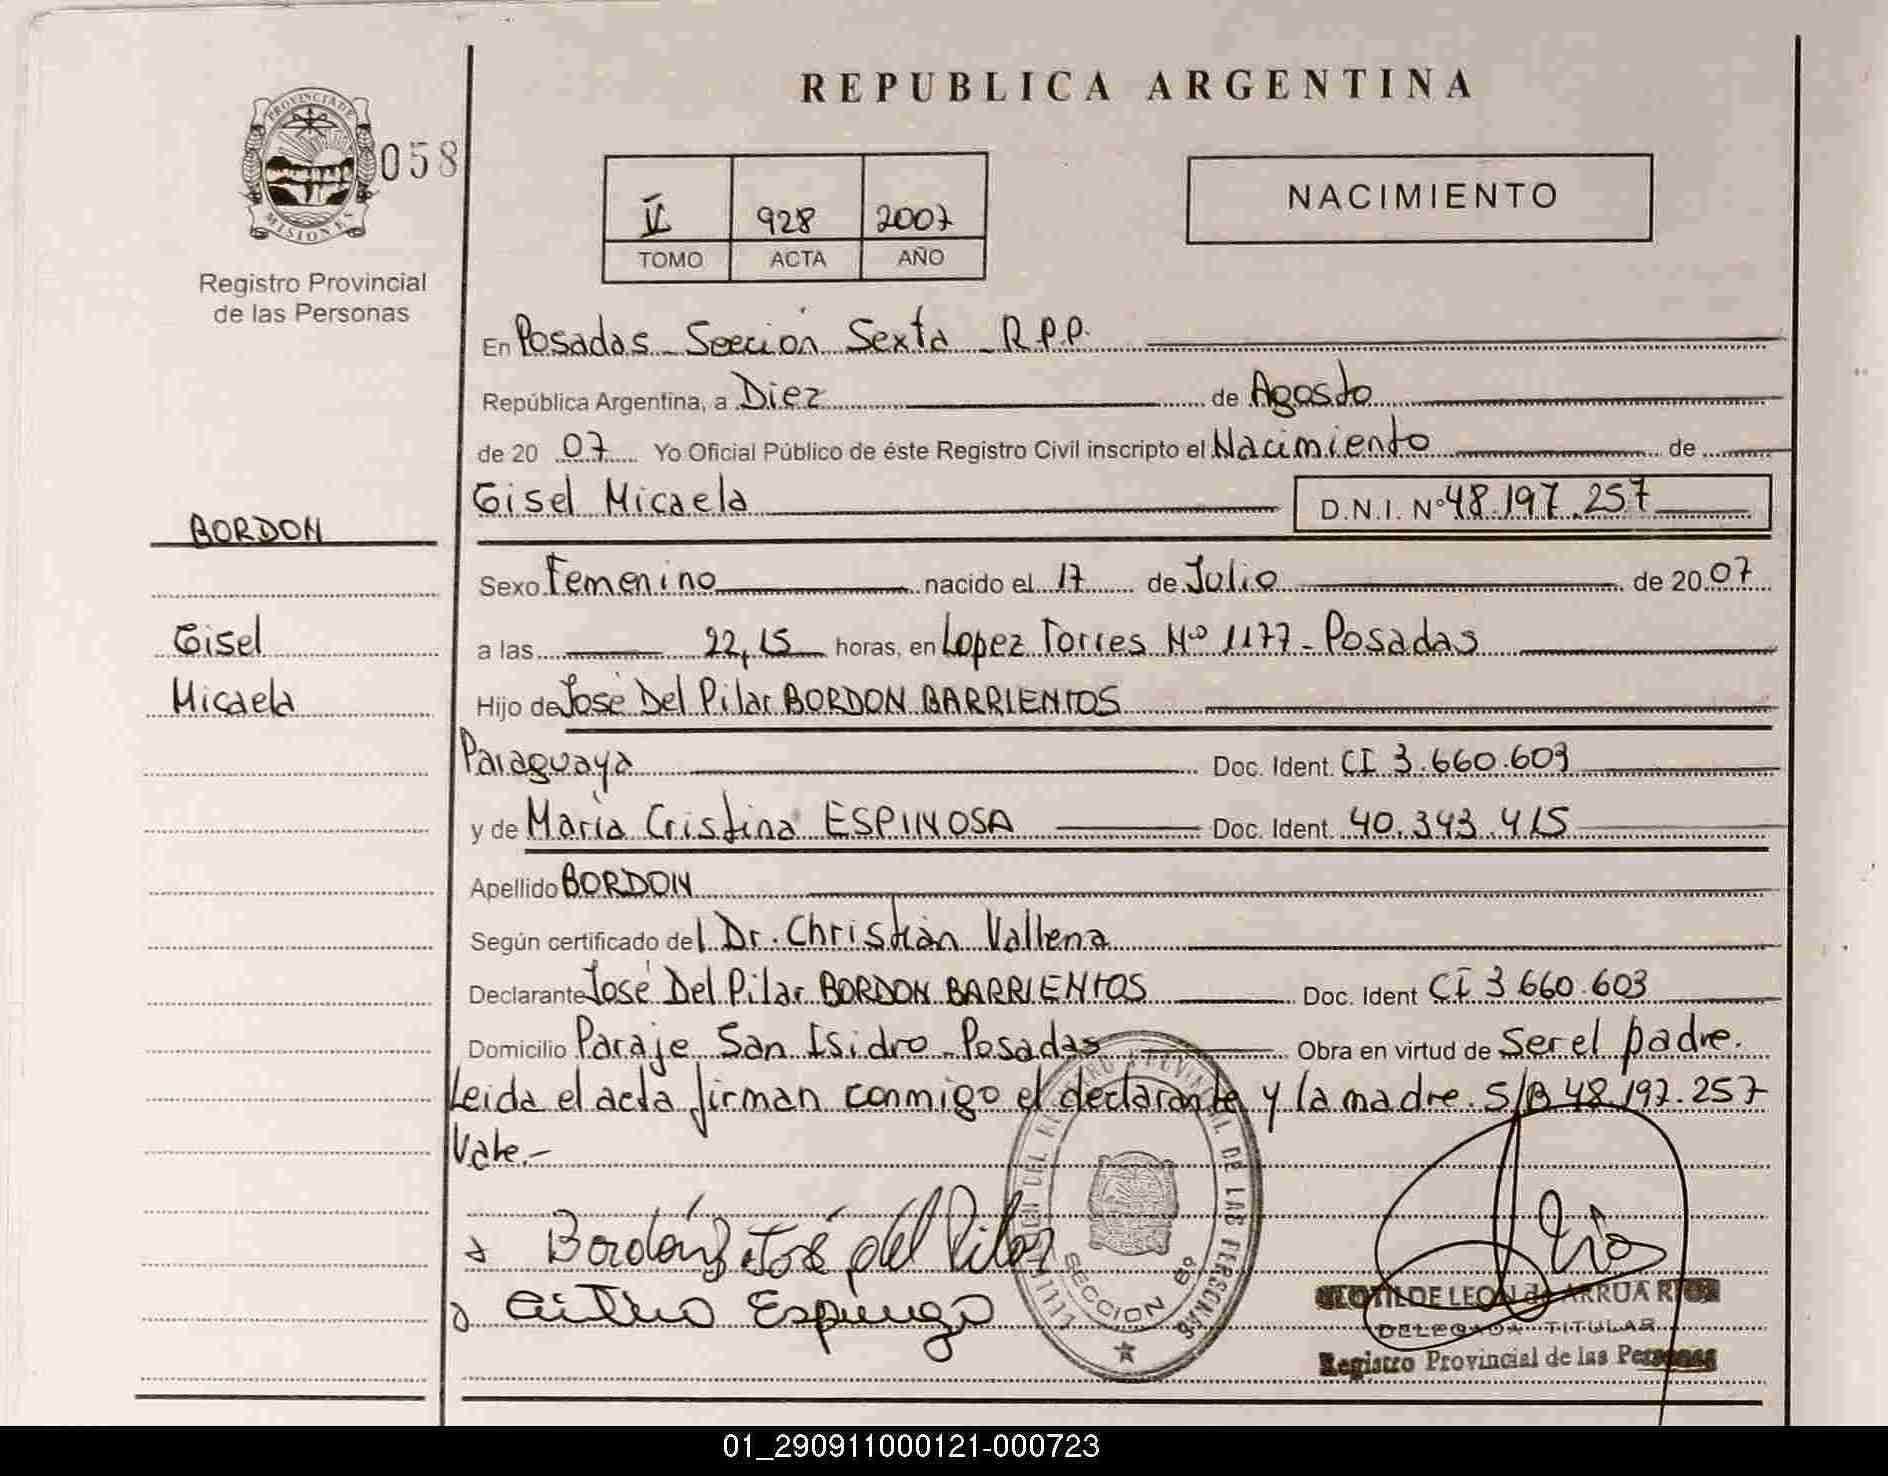 REPUBLICA ARGENTINA
PROVINCIA DE
MISIONES
058
Registro Provincial
de las Personas
V 928 2007
TOMO ACTA AÑO
NACIMIENTO
En Posadas Sección Sexta R.P.P.
República Argentina, a Diez de Agosto
de 2007 Yo Oficial Público de éste Registro Civil inscripto el Nacimiento de
Gisel Micaela D.N.I. Nº 48.197.257
BORDON
Sexo Femenino nacido el 17 de Julio de 2007
Gisel
a las 22,15 horas, en Lopez Torres Nº 1177 - Posadas
Micaela
Hijo de José Del Pilar BORDON BARRIENTOS
Paraguaya Doc. Ident. CI 3.660.603
y de María Cristina ESPINOSA Doc. Ident. 40.343.415
Apellido BORDON
Según certificado del Dr. Christian Vallena
Declarante José Del Pilar BORDON BARRIENTOS Doc. Ident CI 3.660.603
Domicilio Paraje San Isidro - Posadas Obra en virtud de Ser el padre.
Leida el acta firman conmigo el declarante y la madre. S/B 48.197.257
Vale.-
Bordón B José del Pilar
Espinoza
DE LAS PERSONAS
SECCION 6º
CLOTILDE LEON de ARRUA RIOS
DELEGADA TITULAR
Registro Provincial de las Personas
01_290911000121-000723